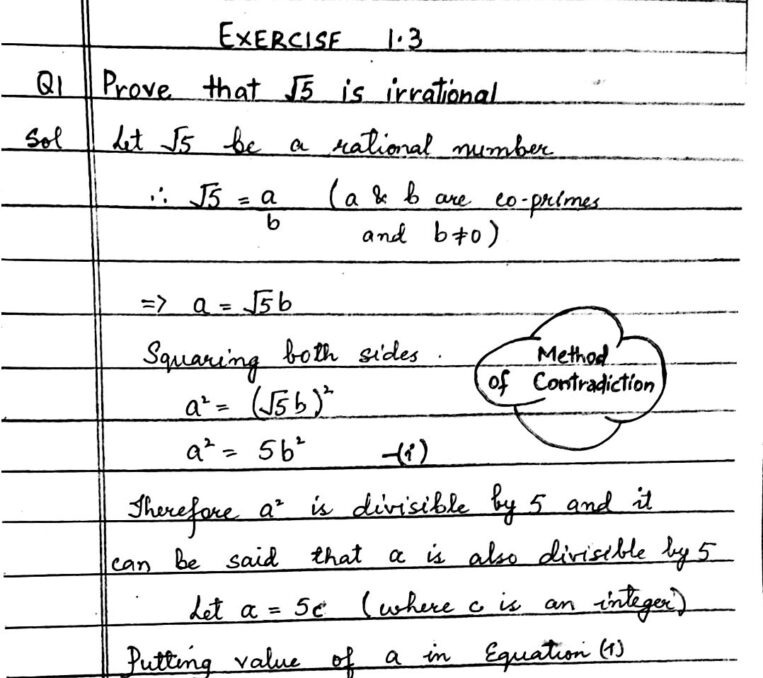 EXERCISE 1.3
Q1 Prove that √5 is irrational
Sol Let √5 be a rational number
∴ √5 = a/b (a & b are co-primes
and b≠0)
=> a = √5b
Squaring both sides.
Method
of Contradiction
a² = (√5b)²
a² = 5b² -(i)
Therefore a² is divisible by 5 and it
can be said that a is also divisible by 5
Let a = 5c (where c is an integer)
Putting value of a in Equation (1)